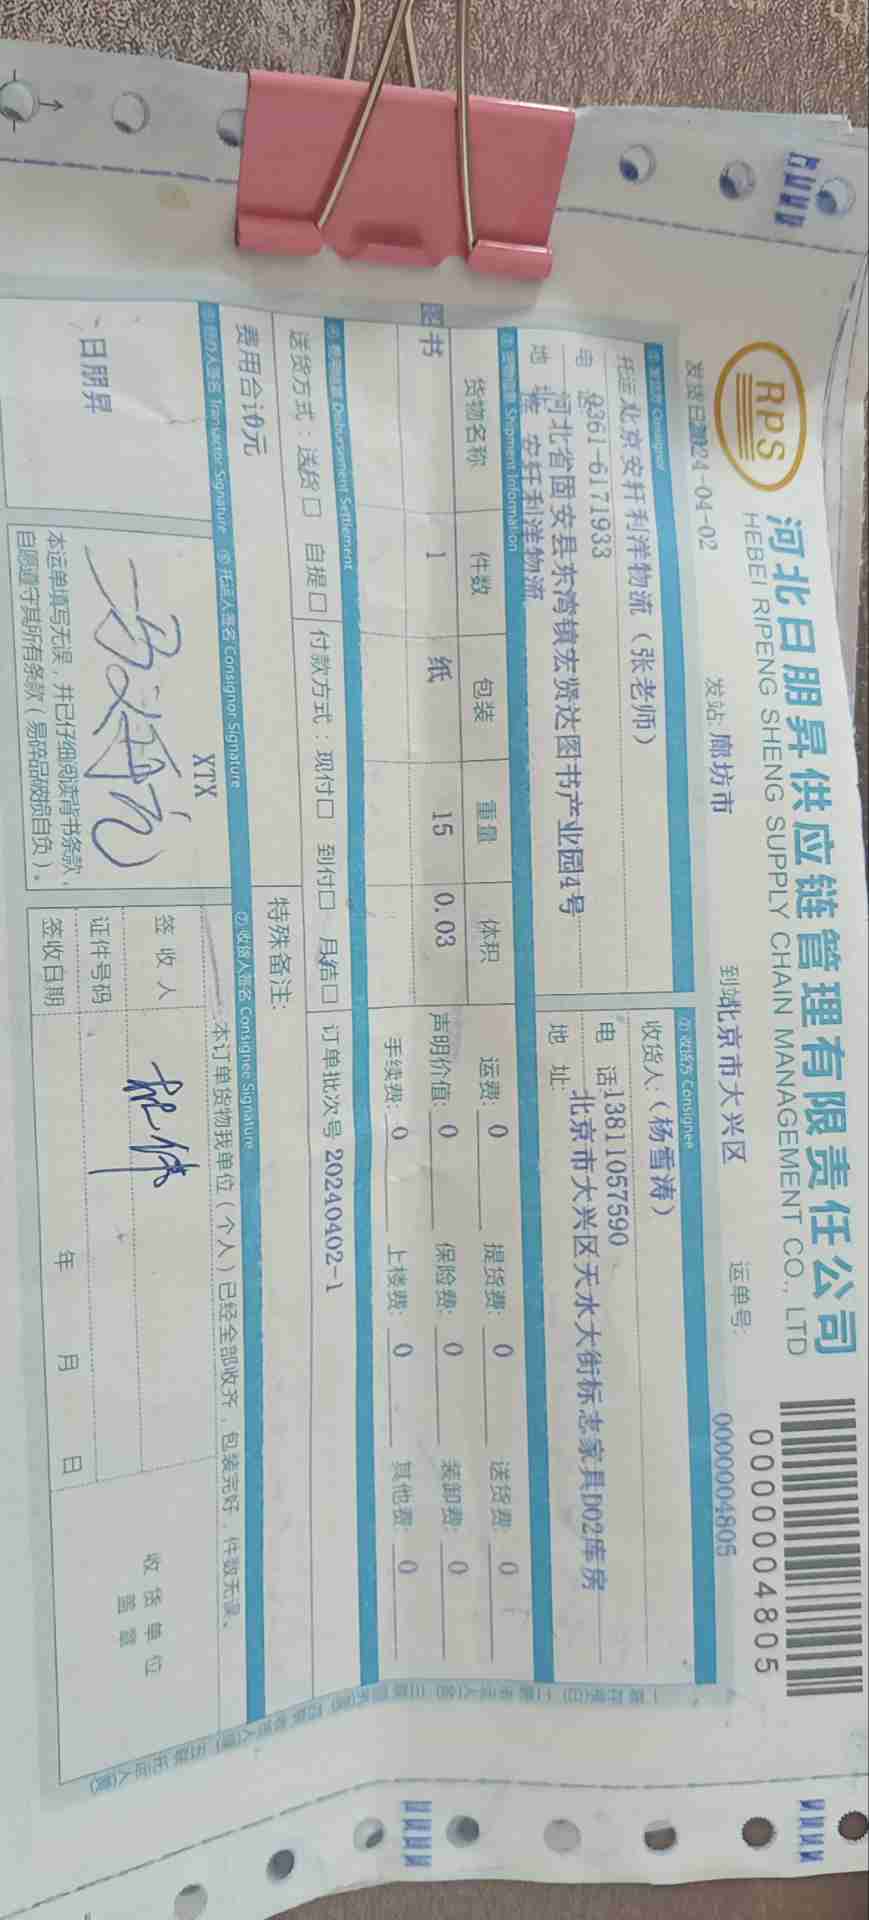 RPS
河北日朋昇供应链管理有限责任公司
HEBEI RIPENG SHENG SUPPLY CHAIN MANAGEMENT CO., LTD
0000004805
发货日2024-04-02 发站: 廊坊市 到站北京市大兴区 运单号: 0000004805
①发货方 Consignor
托运 北京安轩利洋物流（张老师）
电 话 0361-6171933
地 址 河北省固安县东湾镇宏贤达图书产业园4号
库 安轩利洋物流
②收货方 Consignee
收货人:（杨雪涛）
电 话:13811057590
地 址: 北京市大兴区天水大街标志家具D02库房
③货物信息 Shipment Information
货物名称 件数 包装 重量 体积
图书 1 纸 15 0.03
运费: 0 提货费: 0 送货费: 0
声明价值: 0 保险费: 0 装卸费: 0
手续费: 0 上楼费: 0 其他费: 0
Disbursement Settlement
送货方式：送货□ 自提□ 付款方式：现付□ 到付□ 月结□ 订单批次号 20240402-1
费用合计0元
特殊备注:
经办人签名 Transactor Signature
日朋昇
⑥托运人签名 Consignor Signature
XTX
本运单填写无误，并已仔细阅读背书条款，
自愿遵守其所有条款（易碎品破损自负）。
⑦收货人签名 Consignee Signature
本订单货物我单位（个人）已经全部收齐，包装完好，件数无误。
签 收 人
证件号码
签收日期 年 月 日
收货单位
盖章